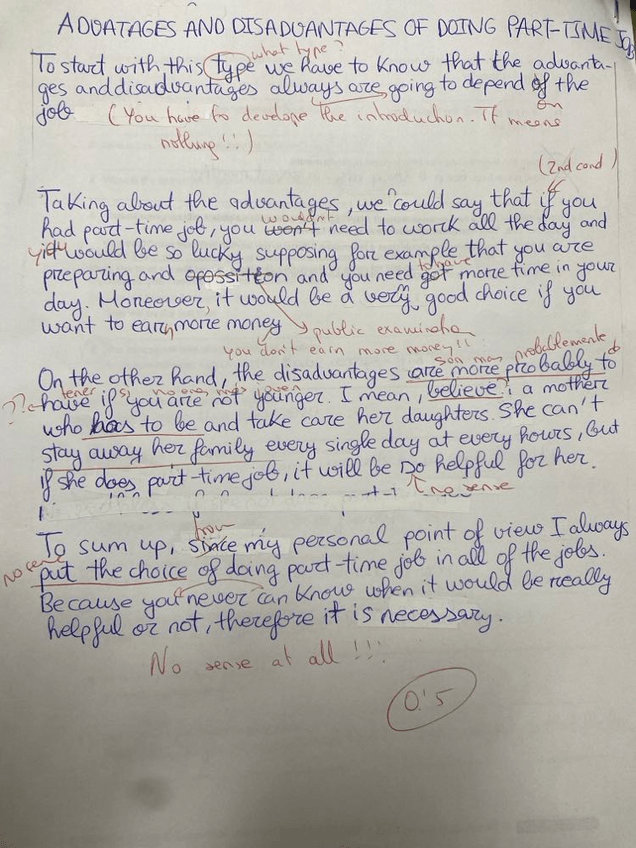 ADVATAGES AND DISADVANTAGES OF DOING PART-TIME JOB
what type?
To start with this type we have to know that the advanta-
ges and disadvantages always are going to depend of the
on
job (You have to develope the introduction. It means
nothing!!)
(2nd cond)
Taking about the advantages, we could say that if you
had part-time job, you won't need to work all the day and
wouldn't
you it would be so lucky supposing for example that you are
preparing and opossition and you need got more time in your
to have
day. Moreover, it would be a very good choice if you
want to earn more money public examination
you don't earn more money!!
son más probablemente
On the other hand, the disadvantages are more probably to
tener si no eres más joven
??  have if you are not younger. I mean, believe i a mother
who has to be and take care her daughters. She can't
stay away her family every single day at every hours, but
if she does part-time job, it will be so helpful for her.
no sense
from
To sum up, since my personal point of view I always
no sense put the choice of doing part-time job in all of the jobs.
Because you never can know when it would be really
helpful or not, therefore it is necessary.
No sense at all!!!
0'5